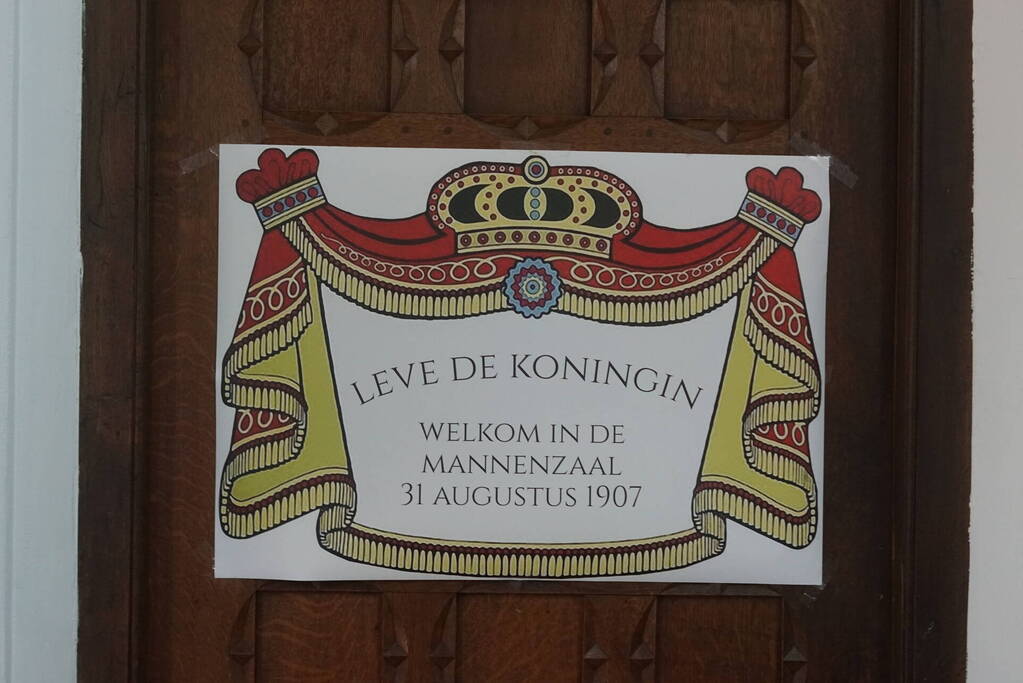 LEVE DE KONINGIN
WELKOM IN DE
MANNENZAAL
31 AUGUSTUS 1907